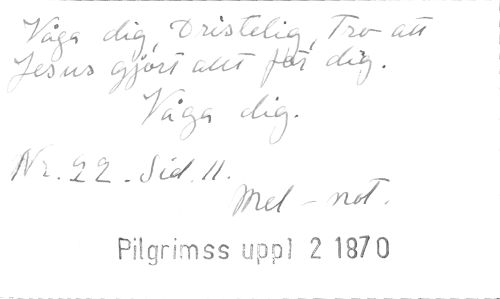 Våga dig, Dristelig, Tro att
Jesus gjort allt för dig.
Våga dig.
Nr. 22. Sid. 11.
Mel - not.
Pilgrimss uppl 2 1870